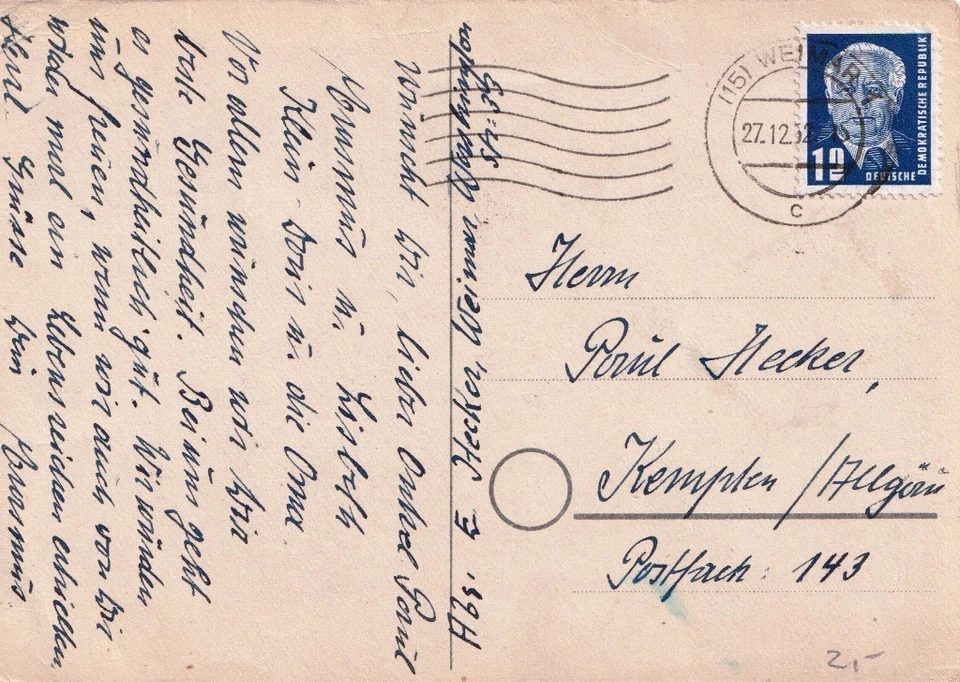 wünscht Dir, lieber Onkel Paul
Erasmus u. Lisbeth
Klein-Doris u. die Oma.
Vor allem wünschen wir Dir
beste Gesundheit. Bei uns geht
es gesundheitlich gut. Wir würden
uns freuen, wenn wir auch von Dir
wieder mal ein Lebenszeichen erhielten.
Herzl. Grüsse Dein Erasmus
Abs. E. Hecker, Weimar
(15) WEIMAR
27.12.52
c
12
DEUTSCHE
DEMOKRATISCHE REPUBLIK
Herrn
Paul Hecker,
Kempten /Allgäu
Postfach: 143
2,-